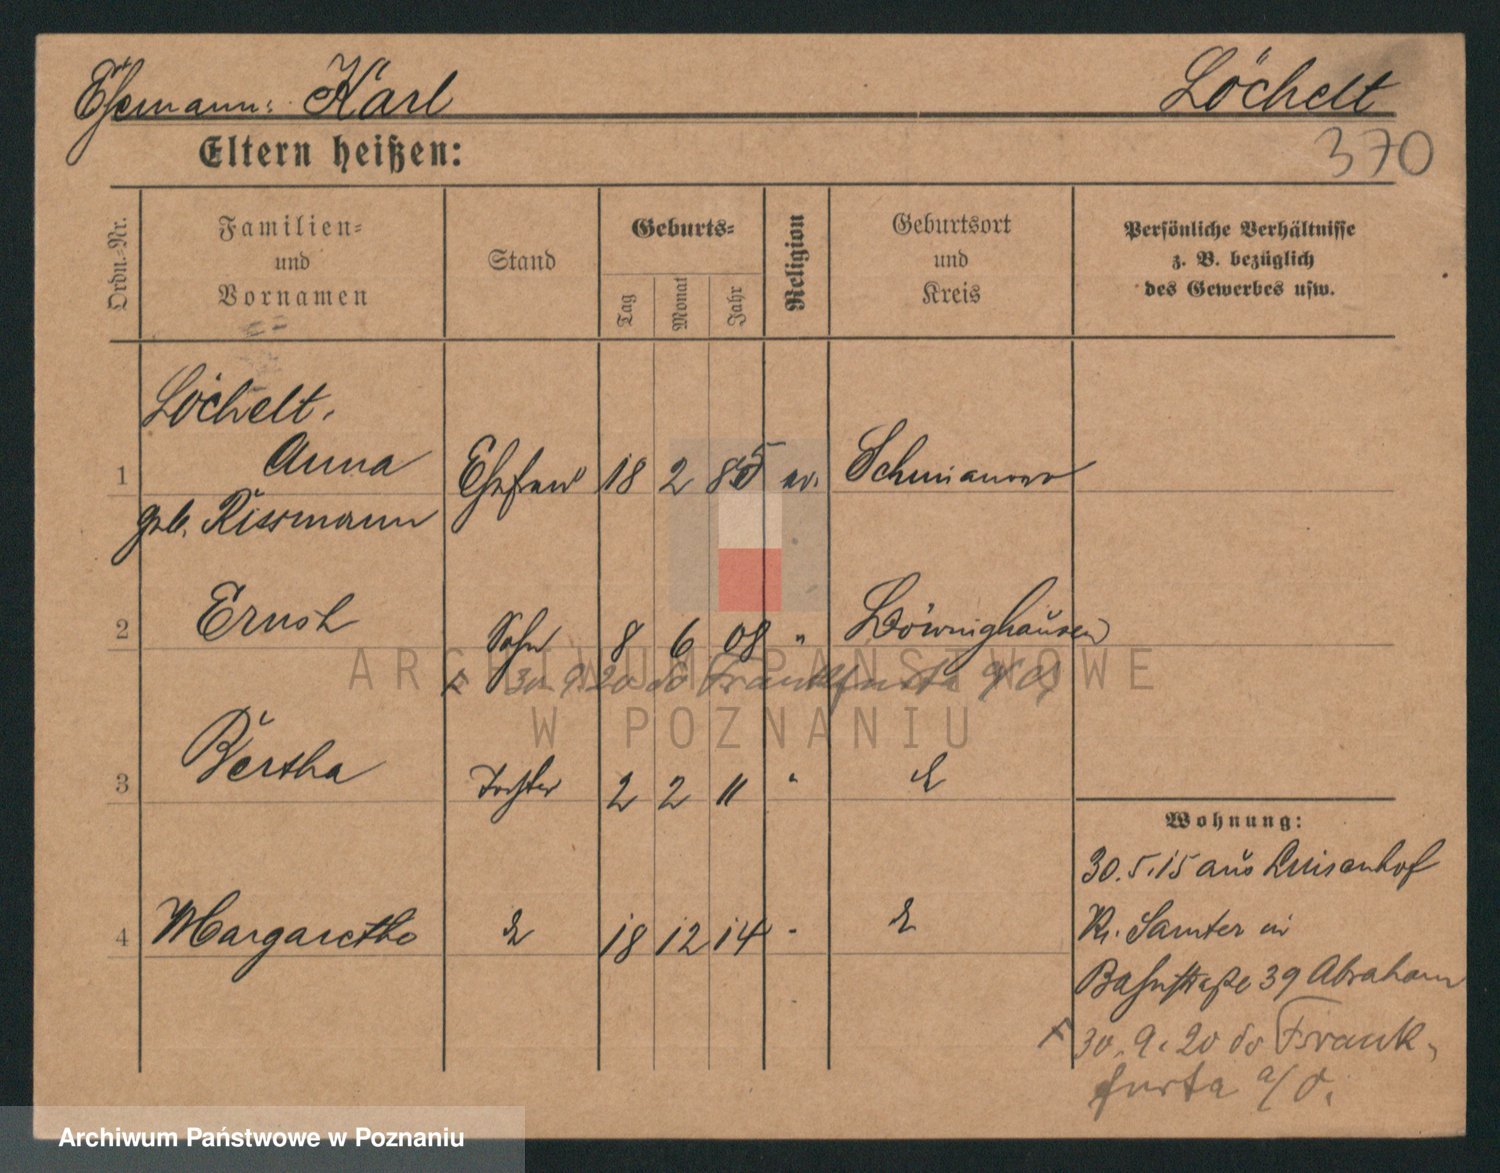 Ehemann: Karl Löchelt
370
Eltern heißen:
Ordn.-Nr. Familien- und Vornamen Stand Geburts- Tag Monat Jahr Religion Geburtsort und Kreis Persönliche Verhältnisse z. B. bezüglich des Gewerbes usw.
Löchelt,
1 Anna Ehefrau 18 2 85 ev.
geb. Rissmann
2 Ernst Sohn 8 6 08 "
30.9.20 do Frankfurta a/O
3 Bertha Tochter 2 2 11 "
4 Margarethe 18 12 14
Wohnung:
30.5.15 aus Luisenhof
Kr. Samter in
Bahnstraße 39 Abraham
30.9.20 do Frank-
furta a/O.
ARCHIWUM PAŃSTWOWE
W POZNANIU
Archiwum Państwowe w Poznaniu